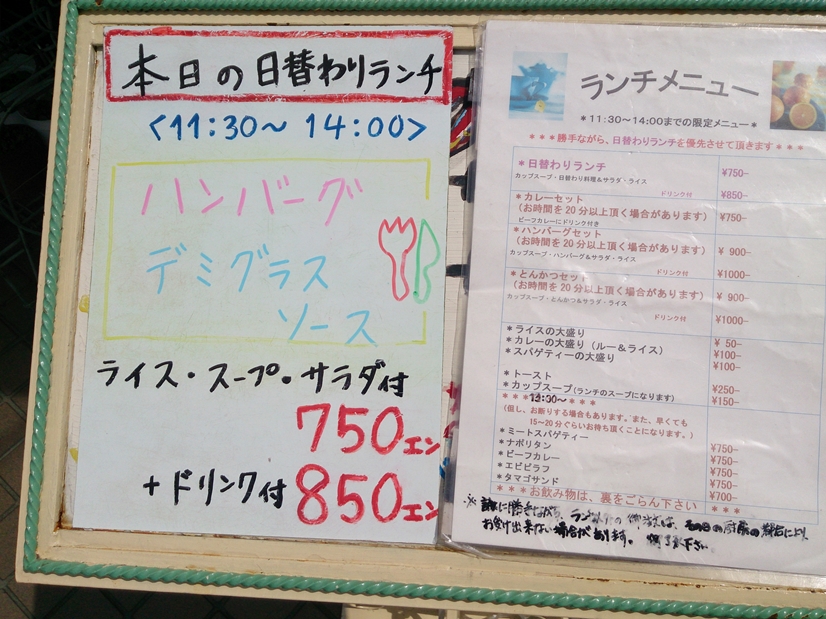 本日の日替わりランチ
<11:30～ 14:00>
ハンバーグ
デミグラス
ソース
ライス・スープ・サラダ付
750エン
+ドリンク付 850エン
ランチメニュー
＊11:30～14:00までの限定メニュー＊
＊＊＊勝手ながら、日替わりランチを優先させて頂きます＊＊＊
＊日替わりランチ ¥750-
カップスープ・日替わり料理＆サラダ・ライス
ドリンク付 ¥850-
＊カレーセット
(お時間を20分以上頂く場合があります) ¥750-
ビーフカレーにドリンク付き
＊ハンバーグセット
(お時間を20分以上頂く場合があります) ¥ 900-
カップスープ・ハンバーグ＆サラダ・ライス
ドリンク付 ¥1000-
＊とんかつセット
(お時間を20分以上頂く場合があります) ¥ 900-
カップスープ・とんかつ＆サラダ・ライス
ドリンク付 ¥1000-
＊ライスの大盛り ¥ 50-
＊カレーの大盛り（ルー＆ライス） ¥100-
＊スパゲティーの大盛り ¥100-
＊トースト ¥250-
＊カップスープ(ランチのスープになります) ¥150-
＊＊＊13:30～＊＊＊
(但し、お断りする場合もあります。また、早くても
15～20分ぐらいお待ち頂くことになります。)
＊ミートスパゲティー ¥750-
＊ナポリタン ¥750-
＊ビーフカレー ¥750-
＊エビピラフ ¥750-
＊タマゴサンド ¥700-
＊＊＊お飲み物は、裏をごらん下さい ＊＊＊
※誠に勝手ながら、ランチ以外の
お受け出来ない場合があります。